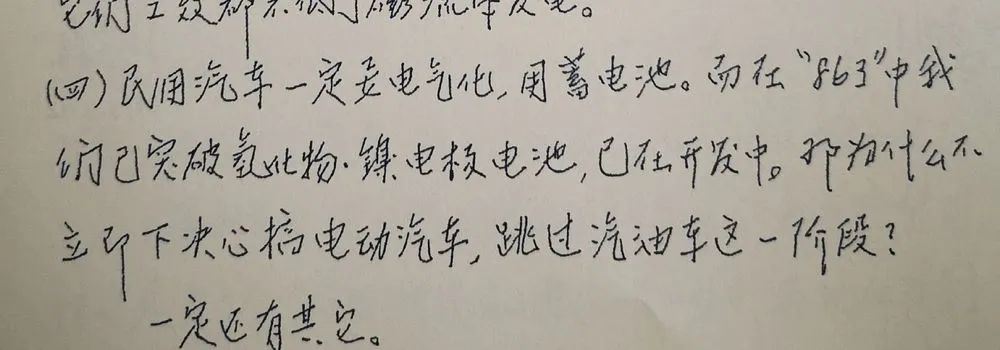 它们工效都不低于磁流体发电。
(四)民用汽车一定要电气化,用蓄电池。而在“863”中我
们已突破氢化物·镍电极电池,已在开发中。那为什么不
立即下决心搞电动汽车,跳过汽油车这一阶段?
一定还有其它。